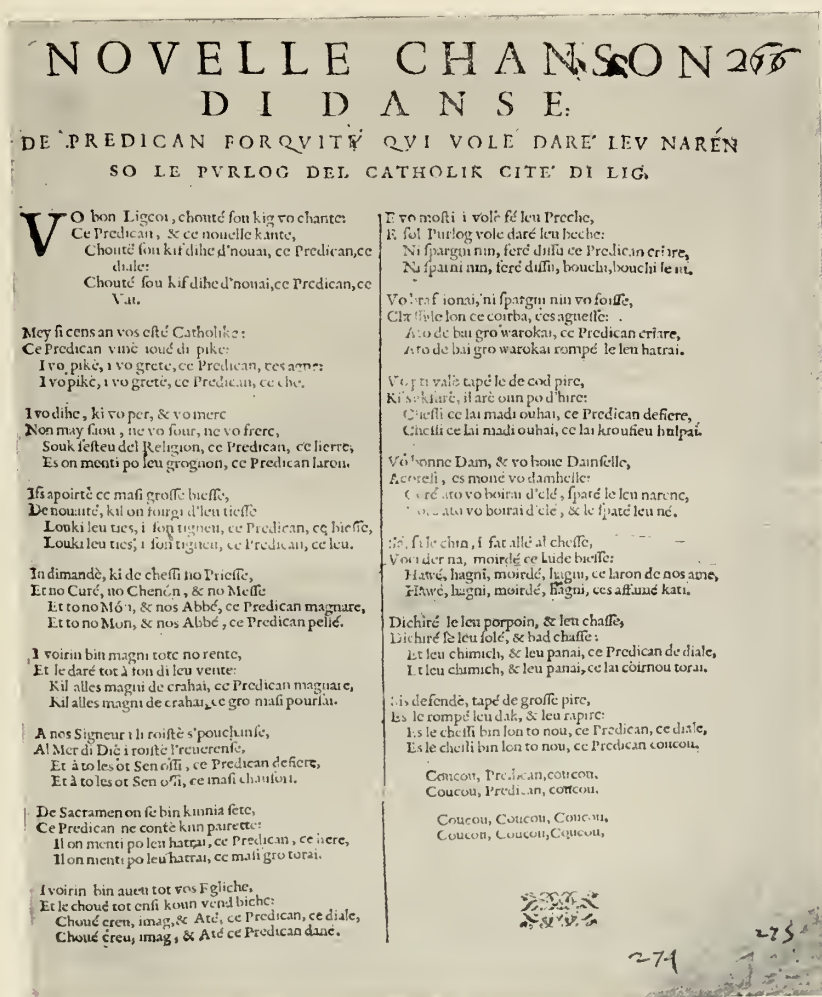 NOVELLE CHANSON 266
DI DANSE:
DE PREDICAN FORQVITY QVI VOLE DARE' LEV NARÉN
SO LE PVRLOG DEL CATHOLIK CITE' DI LIG.
VO bon Ligeoi, chouté sou kig vo chante:
Ce Predican, & ce nouelle kante,
Chouté sou kif dihe d'nouai, ce Predican, ce
diale:
Chouté sou kif dihe d'nouai, ce Predican, ce
Vai.
Mey si cens an vos esté Catholike:
Ce Predican vinè ioué di pike:
I vo pikè, i vo grete, ce Predican, ces agne:
I vo pikè, i vo gretè, ce Predican, ce che.
I vo dihe, ki vo per, & vo mere
Non may siou, ne vo sour, ne vo frere,
Souk sesteu del Religion, ce Predican, ce lierre,
Es on menti po leu grognon, ce Predican laron.
Ils apoirtè ce masi grosse biesse,
De nouaité, kil on forgi d'leu tiesse
Louki leu ties, i son tigneu, ce Predican, ce biesse,
Louki leu ties, i son tigneu, ce Predican, ce leu.
In dimandè, ki de chessi no Priesse,
Et no Curé, no Chenón, & no Messe
Et to no Món, & nos Abbé, ce Predican magnare,
Et to no Mon, & nos Abbé, ce Predican pellé.
I voirin bin magni tote no rente,
Et le daré tot à ton di leu vente:
Kil alles magni de crahai, ce Predican magnare,
Kil alles magni de crahai, ce gro masi pourlai.
A nos Signeur i li roistè s'pouchanse,
Al Mer di Diè i roistè l'reuerense,
Et à to les ot Sen ossi, ce Predican defiere,
Et à to les ot Sen ossi, ce masi chausou.
De Sacramen on se bin kinnia sete,
Ce Predican ne contè knn pairette:
Il on menti po leu hatrai, ce Predican, ce here,
Il on menti po leu hatrai, ce masi gro torai.
I voirin bin aueu tot vos Egliche,
Et le choué tot ensi koun vend biche:
Choué creu, imag, & Até, ce Predican, ce diale,
Choué creu, imag, & Até ce Predican dané.
E vo mosti i volè fé leu Preche,
E sol Purlog vole daré leu beche:
Ni spargni nin, feré dussu ce Predican criare,
Ni sparni nin, feré dussu, bouchi, bouchi le iu.
Vo braf ionai, ni spargni nin vo foisse,
lon ce coirba, ces agnesse:
Ato de bai gro warokai, ce Predican criare,
Ato de bai gro warokai rompé le leu hatrai.
Vo pti valè tapé le de cod pire,
il arè oun po d'hire:
Chessi ce lai madi ouhai, ce Predican defiere,
Chessi ce lai madi ouhai, ce lai kroufieu hulpai.
Vo bonne Dam, & vo bone Dainselle,
Acoresi, es moné vo damhelle:
ato vo boirai d'clé, spaté le leu narene,
ato vo boirai d'clé, & le spaté leu né.
le chin, i fat allé al chesse,
moirdé ce lude biesse:
Hawé, hagni, moirdé, hagni, ce laron de nos ame,
Hawé, hagni, moirdé, hagni, ces affumé kati.
Dichiré le leu porpoin, & leu chasse,
Dichiré le leu solé, & bad chasse:
Et leu chimich, & leu panai, ce Predican de diale,
Et leu chimich, & leu panai, ce lai coirnou torai.
defendè, tapé de grosse pire,
Es le rompé leu dak, & leu rapire:
Es le chessi bin lon to nou, ce Predican, ce diale,
Es le chessi bin lon to nou, ce Predican coucou.
Coucou, Predican, coucou.
Coucou, Predican, coucou.
Coucou, Coucou, Coucou,
Coucou, Coucou, Coucou,
275
274